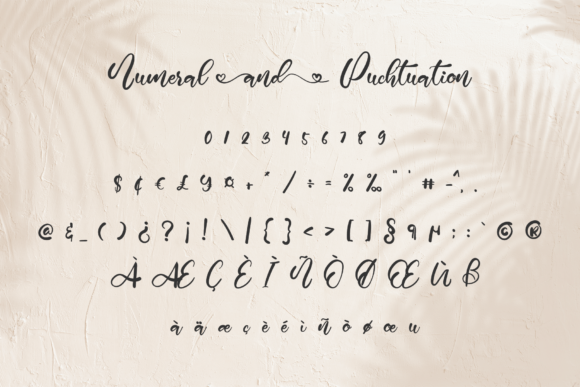 Numeral and Puchtuation
0 1 2 3 4 5 6 7 8 9
$ ¢ € £ y ¤ + * / ÷ = % ‰ " ' # - ^ , .
@ & _ ( ) ¿ ? ¡ ! \ | { } < > [ ] § ¶ µ ; : ` © ®
À Æ Ç È Ì Ñ Ò Ø Œ Ù ß
à ä æ ç è é ì ñ ò ø œ u